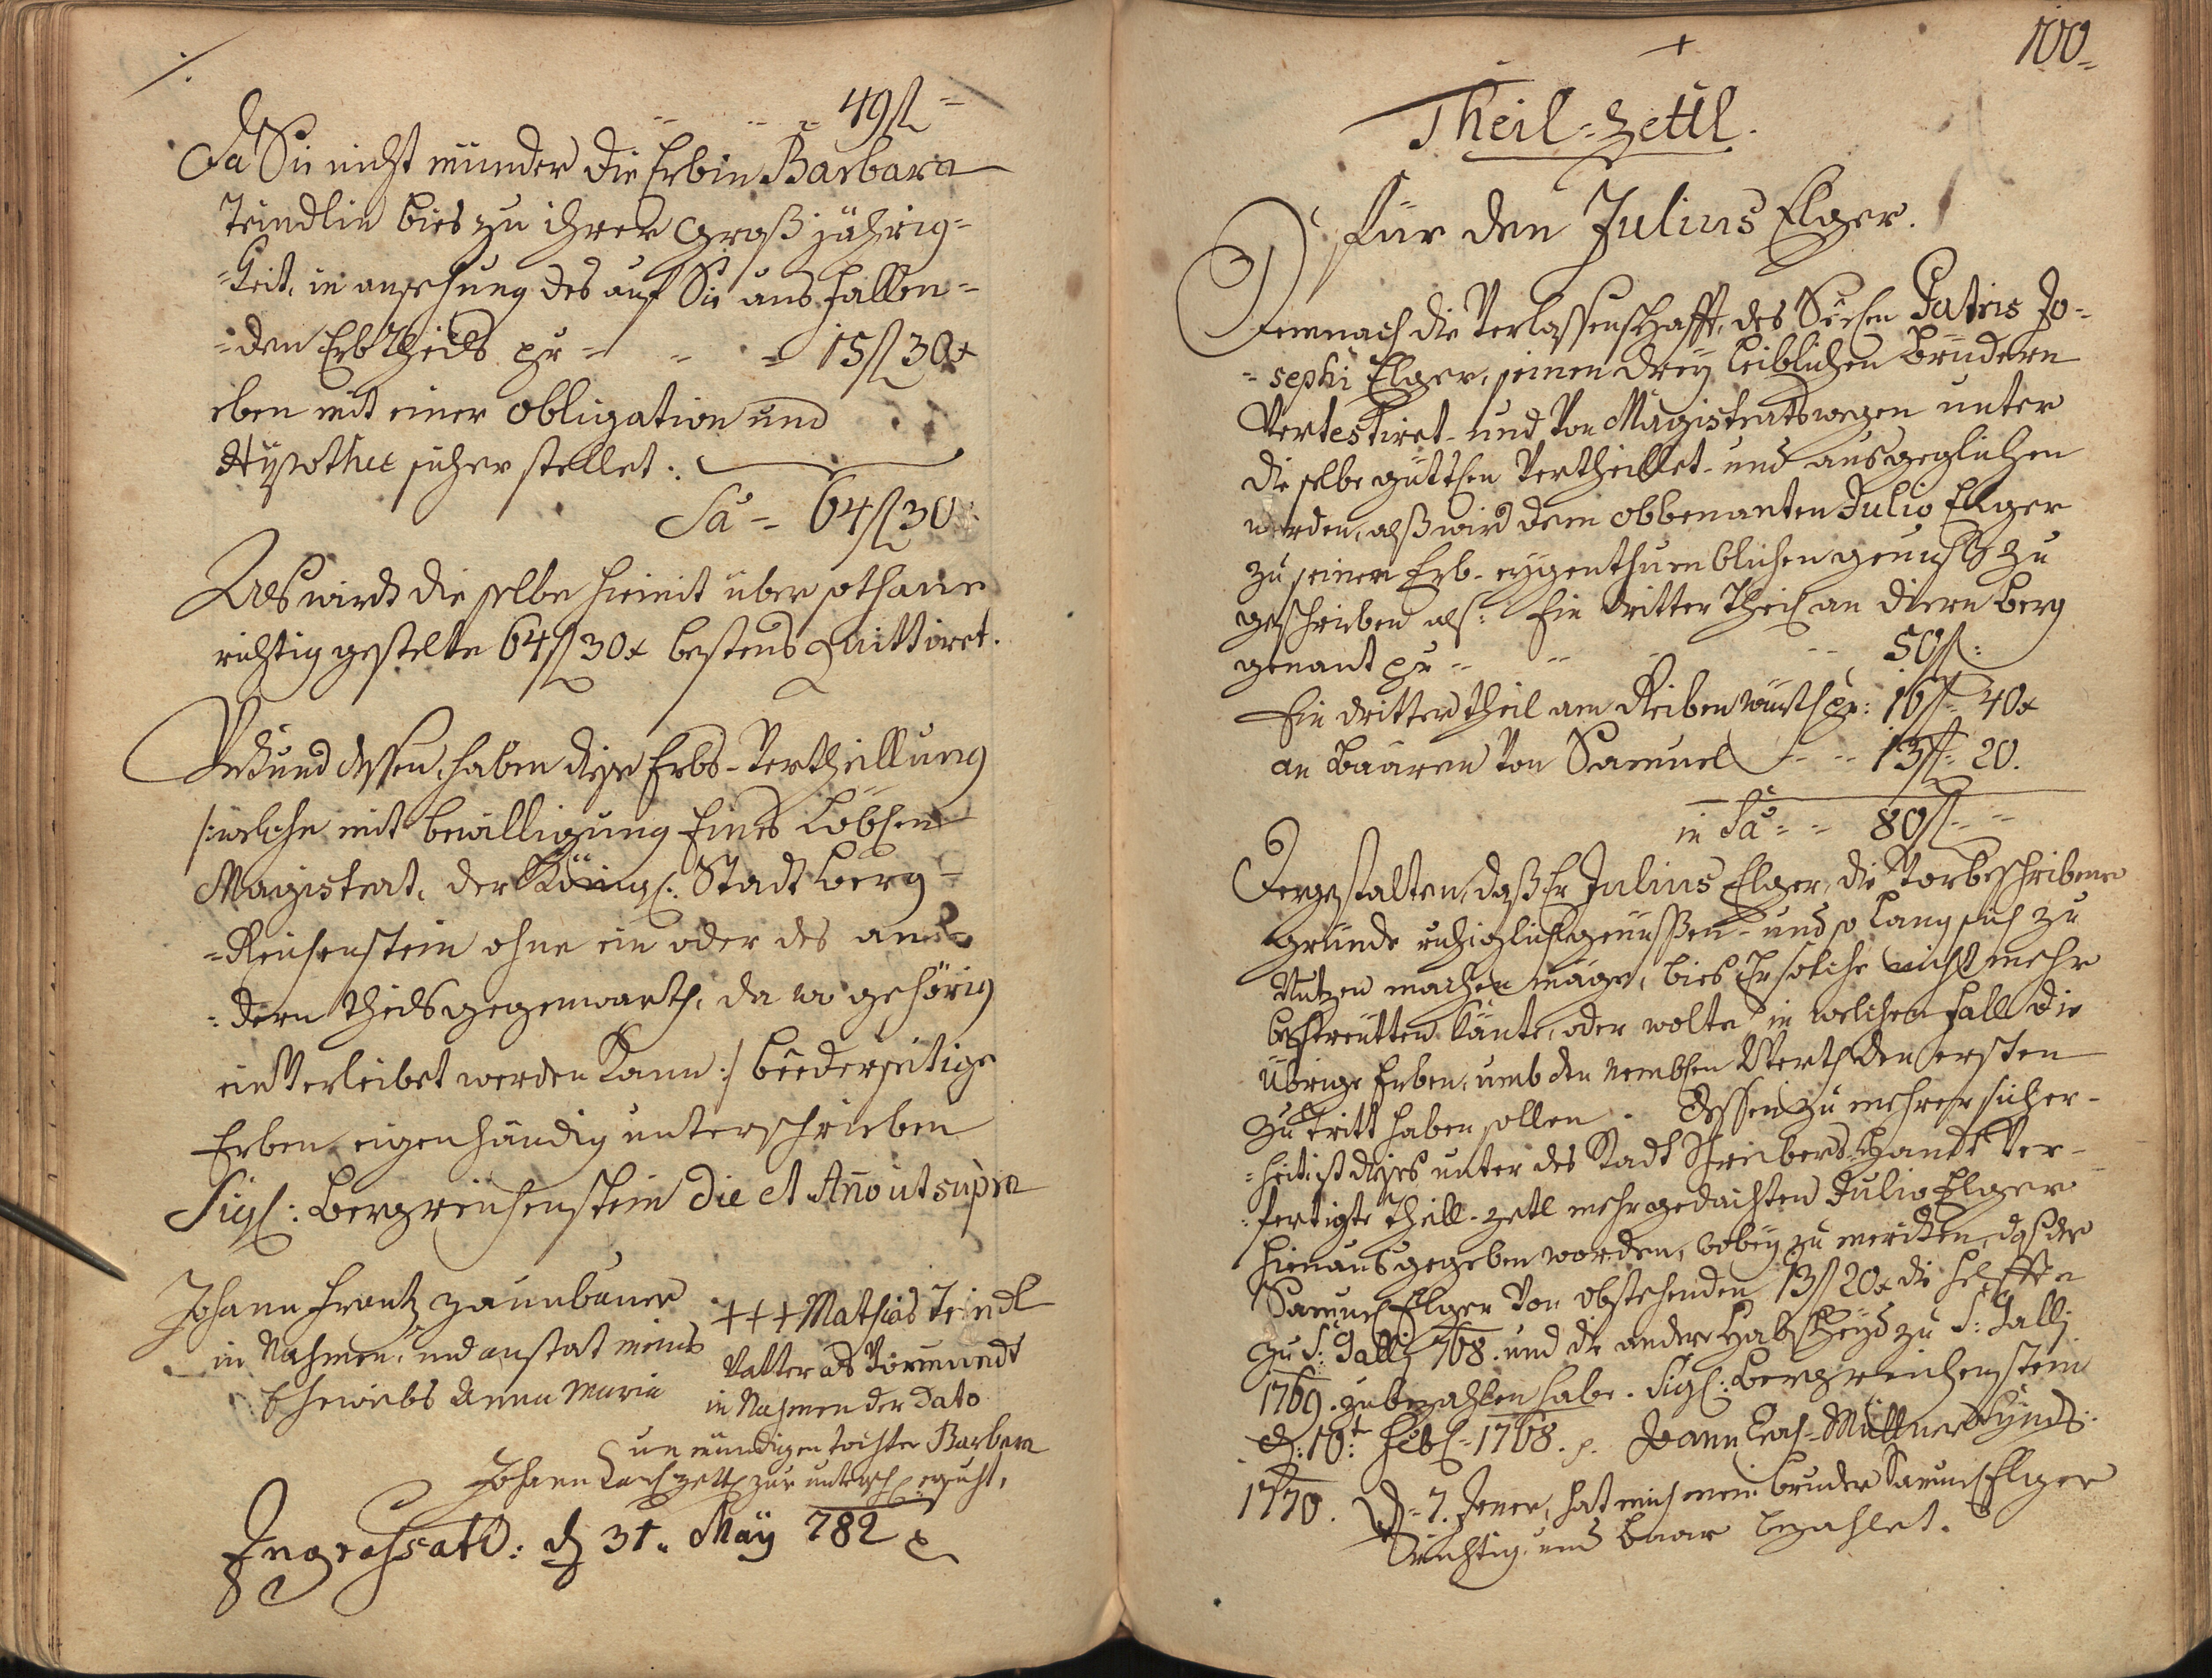 ./.
- - - 49 fl -
Da Sie nicht münder die Erbin Barbara
Teindlin bies zu ihrer Groß jährig=
=keit, in ansehung des auf Sie aus fallen=
=den Erbtheils pr - - - 15 fl 30 x
eben mit einer obligation und
Hypothec sicher stellet:
Sa = 64 fl 30
Als wird die selbe hiemit über sothane
richtig gestelte 64 fl 30 x bestens Quittiret.
Urkund dessen, haben diese Erbs-Vertheillung
/:welche mit bewilligung Eines Löblen
Magistrat, der Königl: Stadt Berg=
=Reichenstein ohne ein oder des an=
=dern theils gegenwarth, da wo gehörig
ein Verleibet werden kann:/ beederseitige
Erben eigenhändig unterschrieben
Sigl: Bergreichenstein die et Año ut supra
Johann Frantz Zaunbauer
in Nahmen, und anstat meines
Eheweibs Anna Maria
+++ Mathias Teindl
Vatter als Vormundt
in Nahmen der dato
un mündigen tochter Barbara
Johann zur untersch: ersucht,
Ingrossatū: d 31. May 782
100
+
Theil=Zettl.
Für den Julius Elger.
Demnach die Verlassenschafft, des Seelen Patris Jo=
=sephi Elger, seinen dreÿ leiblichen Brüdern
Vertestiret- und Von Magistratswegen unter
die selbe güttlen Vertheillet- und ausgeglichen
worden, alß wird dem obbenanten Julio Elger
zu seiner Erb- eygenthumblichen genuß zu
geschrieben als: Ein dritter theil an diern berg
genant pr - - - - 50 fl:
Ein dritter theil am Reiben pr: 16 fl 40 x
an Baaren Von Samuel - - 13 fl 20.
in Sa - - 80 fl - -
Dergestalten, daß Er Julius Elger, die Vorbeschribene
gründe ruhiglich genüssen- und so lang sich zu
Nutzen machen möge, bies Er solche nicht mehr
bestreutten könte, oder wolte, in welchen fall die
übrige Erben, umb den nemblen Werth den ersten
zutritt haben sollen. Dessen zu mehrer sicher=
=heit ist dises unter des Stadt Schreibers Handt Ver=
=fertigte theill-zetl mehrgedachten Julio Elger
hinaus gegeben worden, wobeÿ zu mercken, daß der
Samuel Elger Von obstehenden 13 fl 20 x die helffte
zu S: Gallj 768. und die andere Halbscheyd zu S: Gallj
1769. zubezahlen habe. Sigl: Bergreichenstein
d: 10t Febl = 1768. Müttner Synd:
1770. d= 7. Jener, hat mich mein bruder Samuel Elger
Richtig und baar bezahlet.